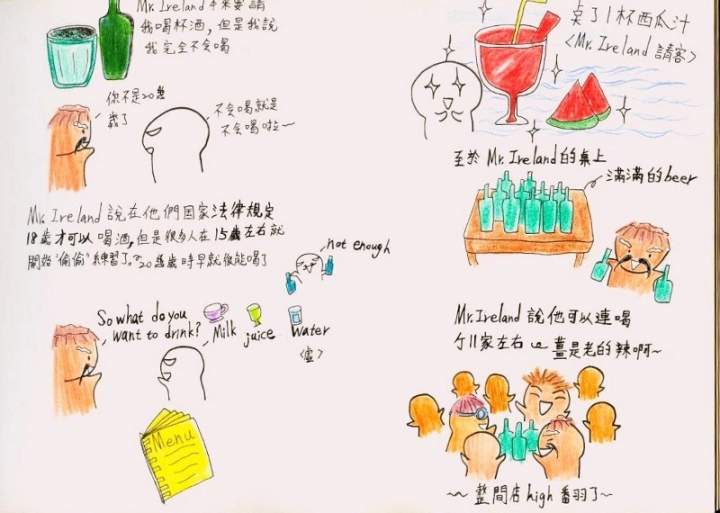 Mr. Ireland 本來要請
我喝杯酒，但是我說
我完全不会喝
你不是20幾
歲了
不会喝就是
不会喝啦~
Mr. Ireland 說在他們国家法律規定
18歲才可以喝酒，但是很多人在15歲左右就
開始"偷偷"練習了。20幾歲時早就很能喝了
not enough
So what do you
want to drink?
Milk juice water
Menu
点了1杯西瓜汁
<Mr. Ireland 請客>
至於 Mr. Ireland 的桌上
滿滿的beer
Mr. Ireland 說他可以連喝
11家左右 薑是老的辣啊~
~ 整間店high翻了~